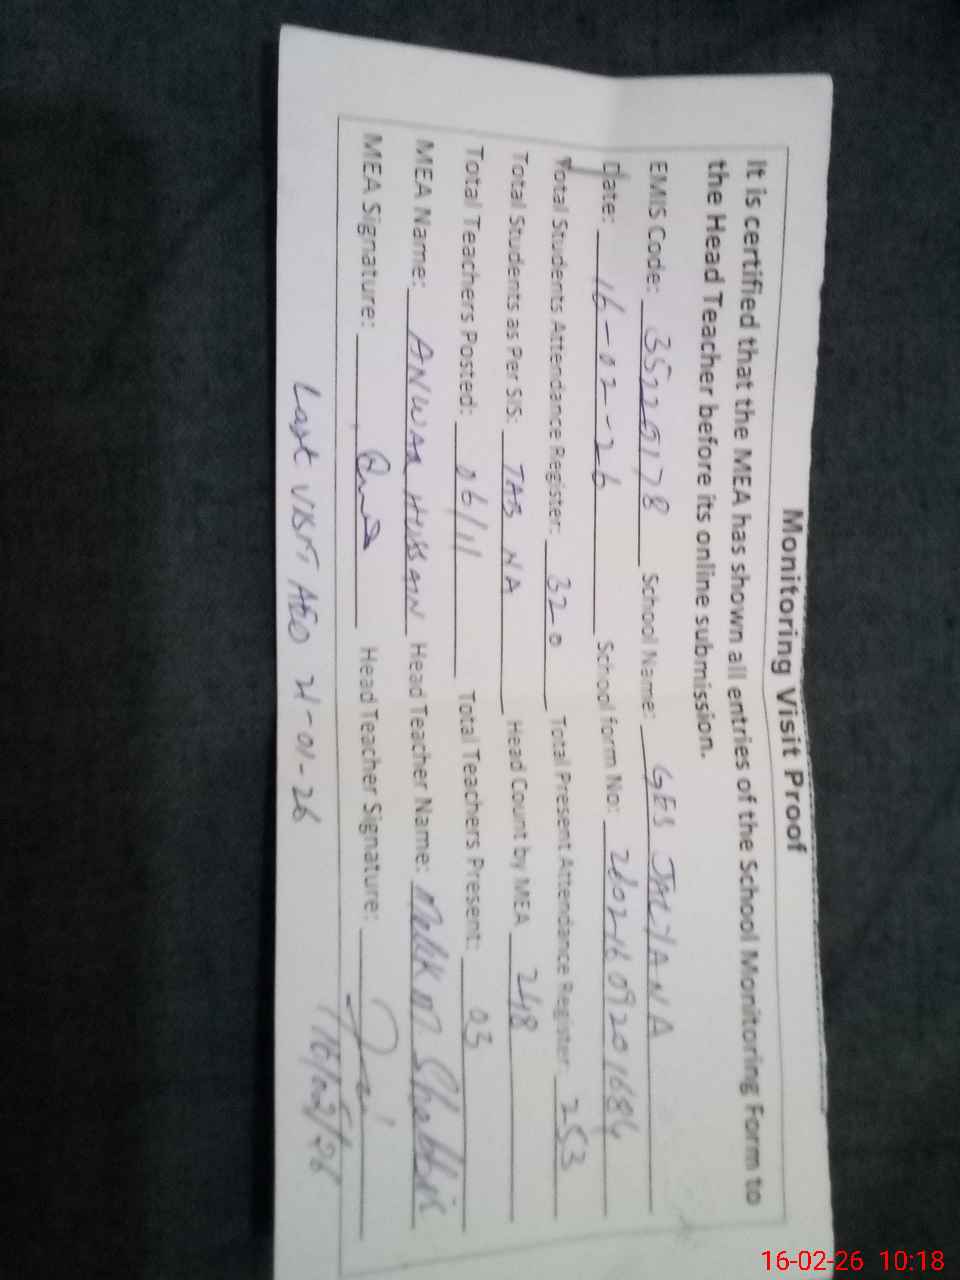 Monitoring Visit Proof
It is certified that the MEA has shown all entries of the School Monitoring Form to
the Head Teacher before its online submission.
EMIS Code: 35220178 School Name: GES JALYANA
Date: 16-02-26 School form No: 26021609201684
Total Students Attendance Register: 320 Total Present Attendance Register: 253
Total Students as Per SIS: TAB NA Head Count by MEA 248
Total Teachers Posted: 06/11 Total Teachers Present: 03
MEA Name: ANWAR HUSSAIN Head Teacher Name: Malik M Shabbir
MEA Signature: Head Teacher Signature:
16/02/26
Last Visit AEO 21-01-26
16-02-26 10:18